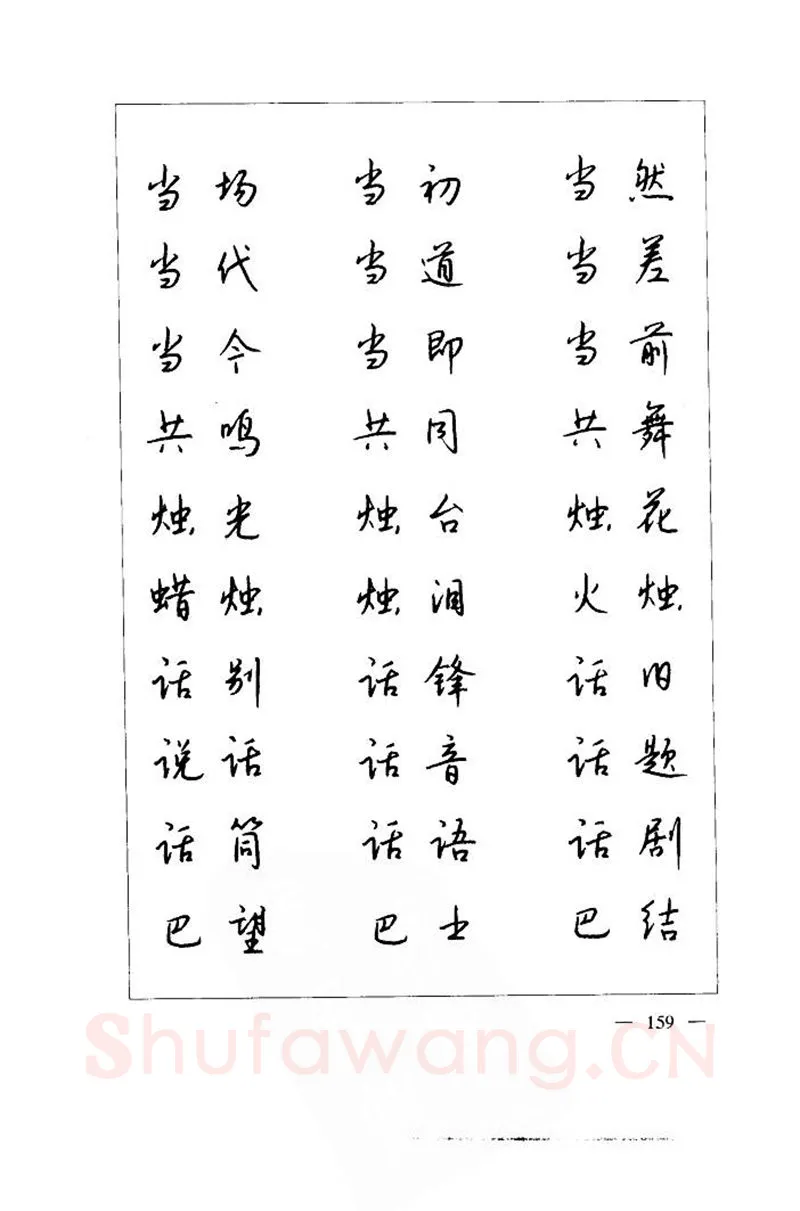 当场 当初 当然
当代 当道 当差
当今 当即 当前
共鸣 共同 共舞
烛光 烛台 烛花
蜡烛 烛泪 火烛
话别 话锋 话旧
说话 话音 话题
话筒 话语 话剧
巴望 巴士 巴结
— 159 —
Shufawang.CN